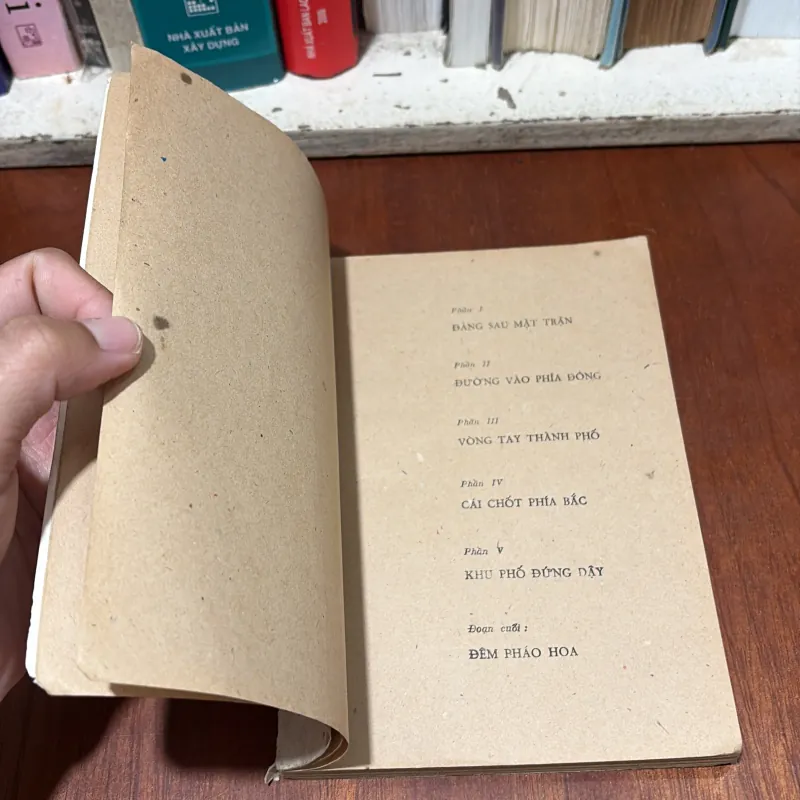 i
NHÀ XUẤT BẢN
XÂY DỰNG
NHÀ XUẤT BẢN LAO
2008
Phần I
ĐẰNG SAU MẶT TRẬN
Phần II
ĐƯỜNG VÀO PHÍA ĐÔNG
Phần III
VÒNG TAY THÀNH PHỐ
Phần IV
CÁI CHỐT PHÍA BẮC
Phần V
KHU PHỐ ĐỨNG DẬY
Đoạn cuối :
ĐÊM PHÁO HOA